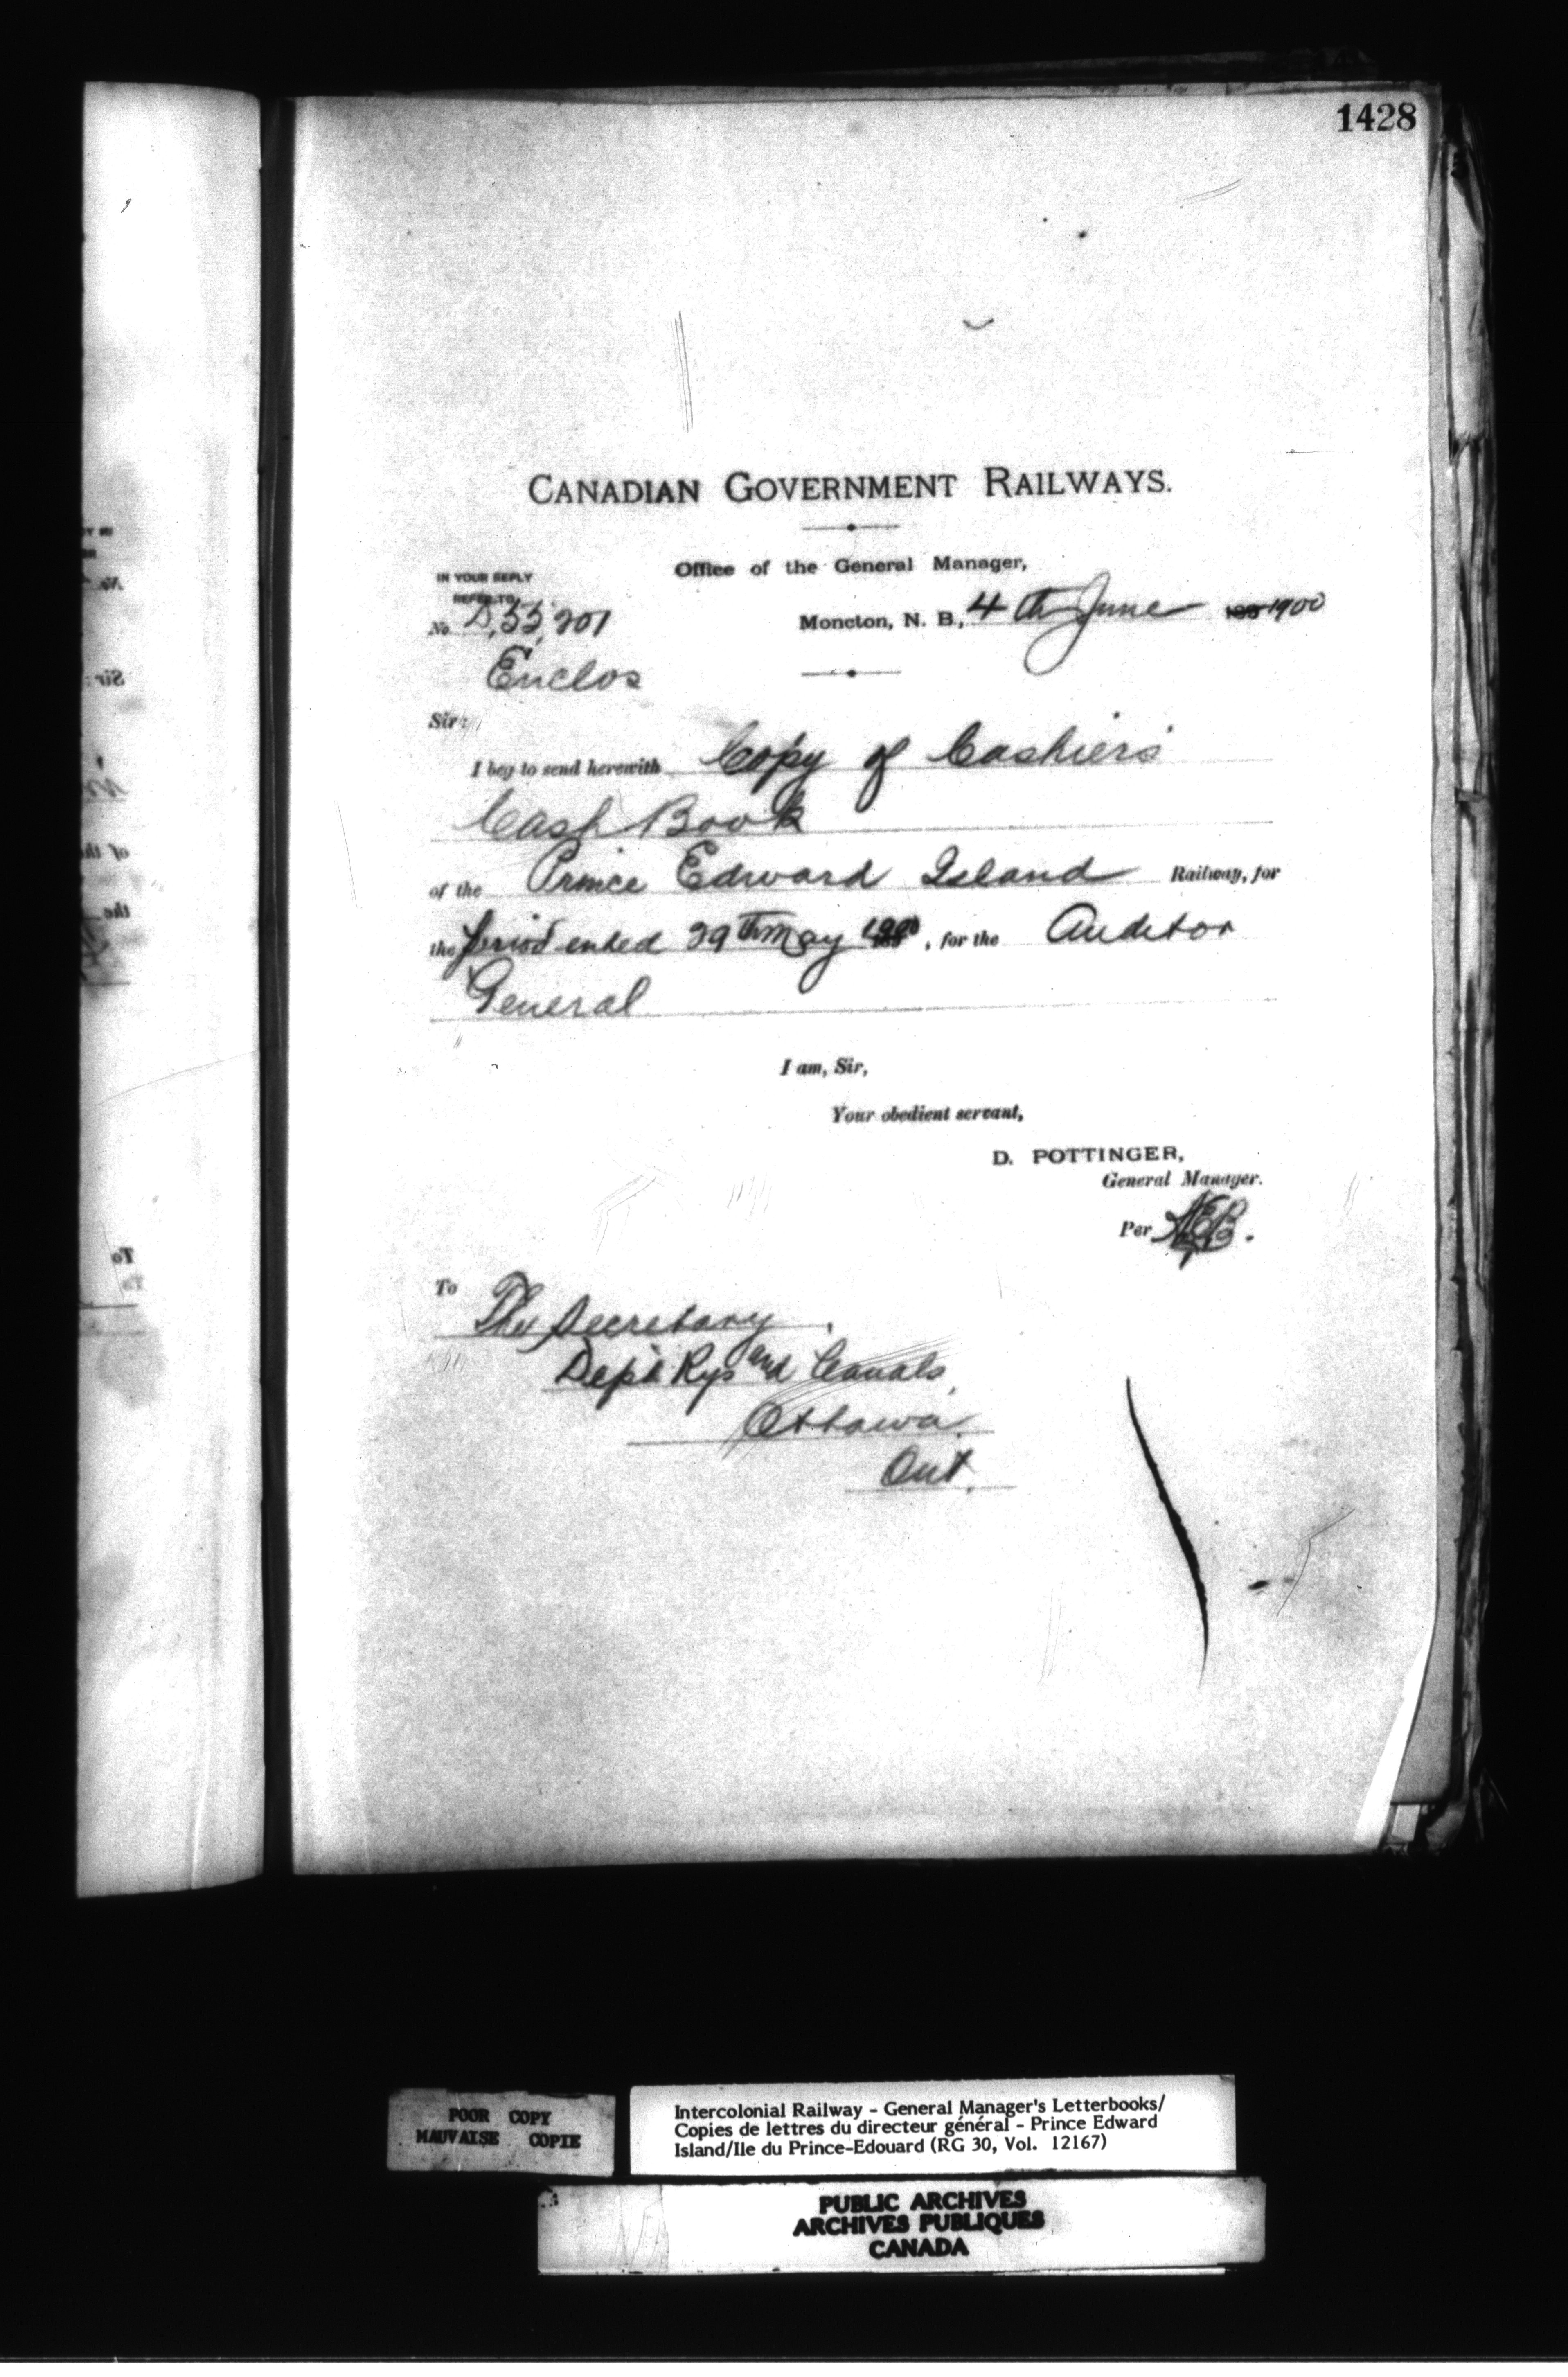 1428
CANADIAN GOVERNMENT RAILWAYS.
Office of the General Manager,
IN YOUR REPLY
REFER TO
No. D,55,201
Moncton, N. B., 4th June 1900
Enclos
Sir:
I beg to send herewith Copy of Cashiers
Cash Book
of the Prince Edward Island Railway, for
the period ended 29th May 1900, for the Auditor
General
I am, Sir,
Your obedient servant,
D. POTTINGER,
General Manager.
Per
To
The Secretary,
Dept Rys and Canals,
Ottawa.
Ont.
POOR COPY
MAUVAISE COPIE
Intercolonial Railway - General Manager's Letterbooks/
Copies de lettres du directeur général - Prince Edward
Island/Ile du Prince-Edouard (RG 30, Vol. 12167)
PUBLIC ARCHIVES
ARCHIVES PUBLIQUES
CANADA